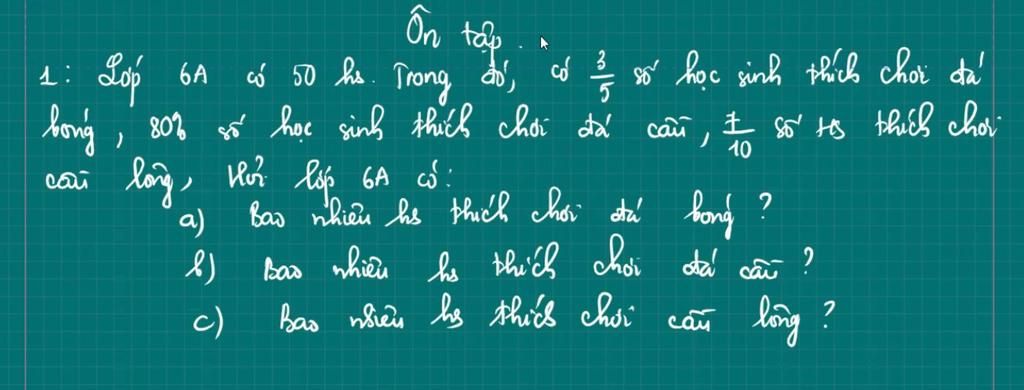 Ôn tập.
1: Lớp 6A có 50 hs. Trong đó, có 3/5 số học sinh thích chơi đá
bóng, 80% số học sinh thích chơi đá cầu, 7/10 số HS thích chơi
cầu lông, Hỏi lớp 6A có:
a) Bao nhiêu hs thích chơi đá bóng?
b) Bao nhiêu hs thích chơi đá cầu?
c) Bao nhiêu hs thích chơi cầu lông?